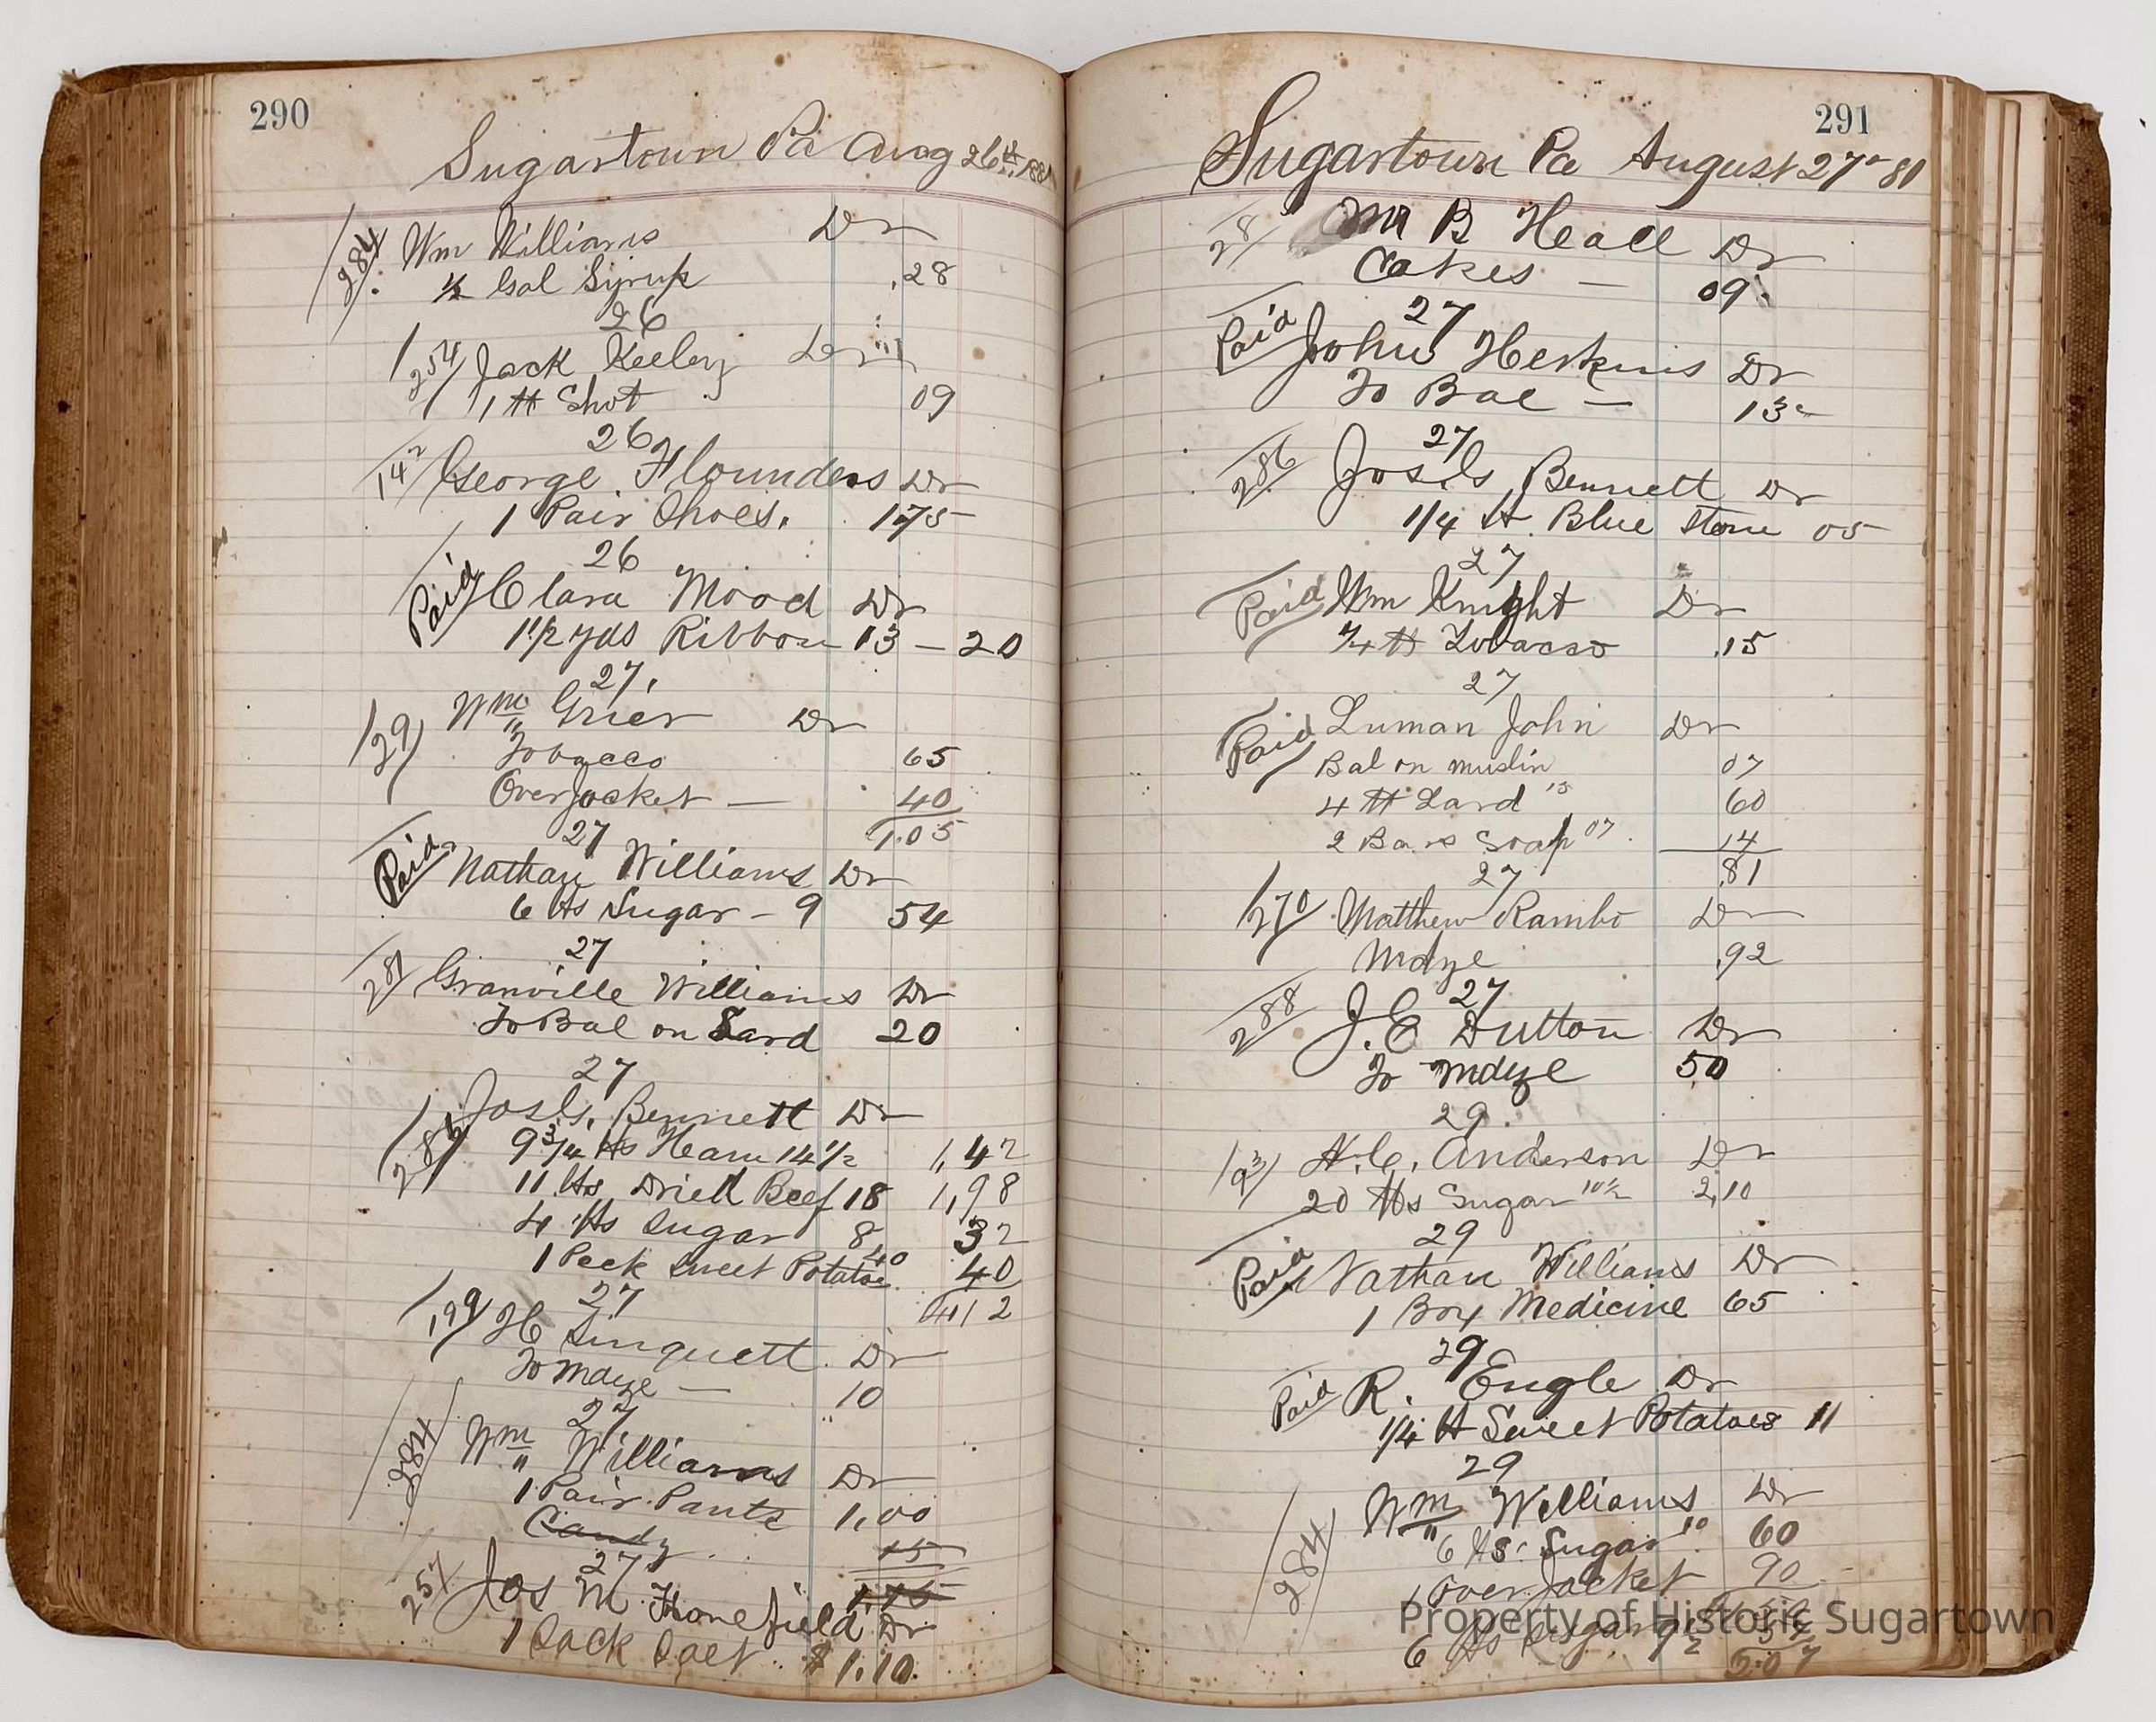 290
Sugartown Pa Aug 26th, 1881
284 Wm Williams Dr
½ Gal Syrup .28
26
254 Jack Keeley Dr
1 ℔ Shot 09
26
142 George Flounders Dr
1 Pair Shoes. 175
26
Paid Clara Mood Dr
1 1/2 yds Ribbon 13 — 20
27.
29 Wm Grier Dr
Tobacco 65
Over Jacket — 40
1.05
27
Paid Nathan Williams Dr
6 ℔s Sugar - 9 54
27
281 Granville Williams Dr
To Bal on Lard 20
27
286 Bennett Dr
9 3/4 ℔s Ham 14 1/2 1,42
11 ℔s Dried Beef 18 1,98
4 ℔s Sugar 8 32
1 Peck Sweet Potatoe 40 40
412
27
199 Dr
To Mdze — 10
27
284 Wm Williams Dr
1 Pair Pants 1,00
Candy 15
1,15
27
257 Jos M Dr
1 Sack Salt $1.10.
291
Sugartown Pa August 27" 81
28 B Heall Dr
Cakes — 09
27
Paid John Dr
To Bal — 13
27
286 Bennett Dr
1/4 ℔ Blue Stone 05
27
Paid Wm Knight Dr
1/4 ℔ Tobacco .15
27
Paid Luman John Dr
Bal on muslin 07
4 ℔ Lard 15 60
2 Bars Soap 07 14
.81
27
270 Matthew Rambo Dr
Mdze .92
27
288 J. E Dutton Dr
To Mdze 50
29.
93 N. C. Anderson Dr
20 ℔s Sugar 10½ 2,10
29
Paid Nathan Williams Dr
1 Box Medicine 65
29
Paid R. Engle Dr
1/4 ℔ Sweet Potatoes 11
29
284 Wm Williams Dr
6 ℔s Sugar 10 60
1 Over Jacket 90
6 ℔s Sugar 9½ 57
Property of Historic Sugartown